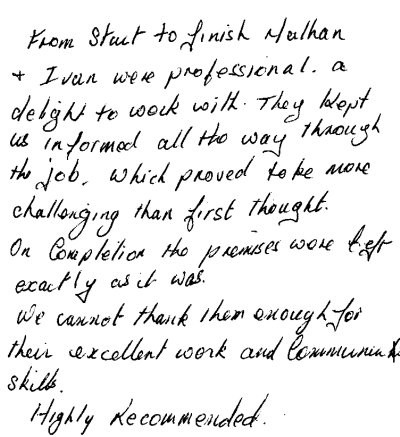 From Start to finish Malhan
+ Ivan were professional. a
delight to work with. They kept
us informed all the way through
the job, which proved to be more
challenging than first thought.
On Completion the premises were left
exactly as it was.
We cannot thank them enough for
their excellent work and
skills.
Highly Recommended.